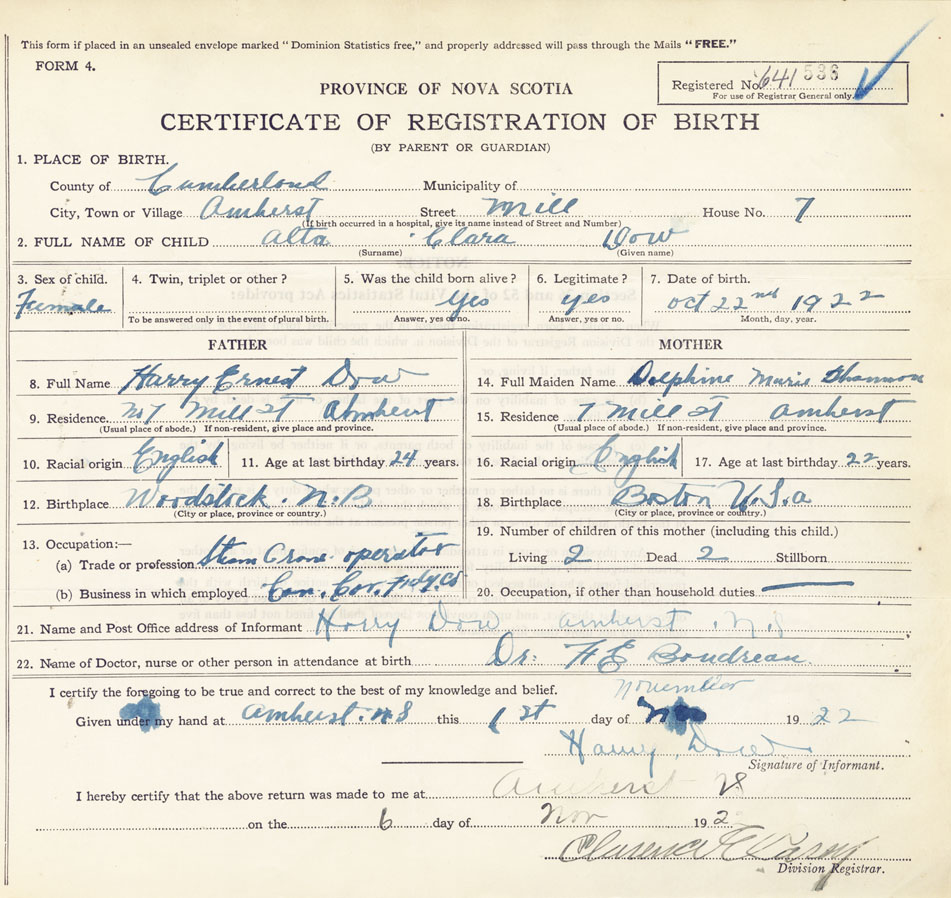 This form if placed in an unsealed envelope marked "Dominion Statistics free," and properly addressed will pass through the Mails "FREE."
FORM 4.
Registered No. 641 536
For use of Registrar General only.
PROVINCE OF NOVA SCOTIA
CERTIFICATE OF REGISTRATION OF BIRTH
(BY PARENT OR GUARDIAN)
1. PLACE OF BIRTH.
County of Cumberland Municipality of
City, Town or Village Amherst Street Mill House No. 7
(If birth occurred in a hospital, give its name instead of Street and Number)
2. FULL NAME OF CHILD Alta Clara Dow
(Surname) (Given name)
3. Sex of child. 4. Twin, triplet or other? 5. Was the child born alive? 6. Legitimate? 7. Date of birth.
Female Yes yes Oct 22nd 1922
To be answered only in the event of plural birth. Answer, yes or no. Answer, yes or no. Month, day, year.
FATHER MOTHER
8. Full Name Harry Ernest Dow 14. Full Maiden Name Delphine Marie
9. Residence. No 7 Mill St Amherst 15. Residence 7 Mill St Amherst
(Usual place of abode.) If non-resident, give place and province. (Usual place of abode.) If non-resident, give place and province.
10. Racial origin English 11. Age at last birthday 24 years. 16. Racial origin English 17. Age at last birthday 22 years.
12. Birthplace Woodstock N.B 18. Birthplace Boston U.S.a
(City or place, province or country.) (City or place, province or country.)
13. Occupation:— 19. Number of children of this mother (including this child.)
(a) Trade or profession Steam Crane operator Living 2 Dead 2 Stillborn
(b) Business in which employed Can. Car. Fdy. Co 20. Occupation, if other than household duties
21. Name and Post Office address of Informant Harry Dow amherst. N.S
22. Name of Doctor, nurse or other person in attendance at birth Dr. F E Boudreau
I certify the foregoing to be true and correct to the best of my knowledge and belief. November
Given under my hand at amherst. N.S this 1st day of 1922
Harry Dow
Signature of Informant.
I hereby certify that the above return was made to me at Amherst NS
on the 6 day of Nov 192
Clarence E Casey
Division Registrar.